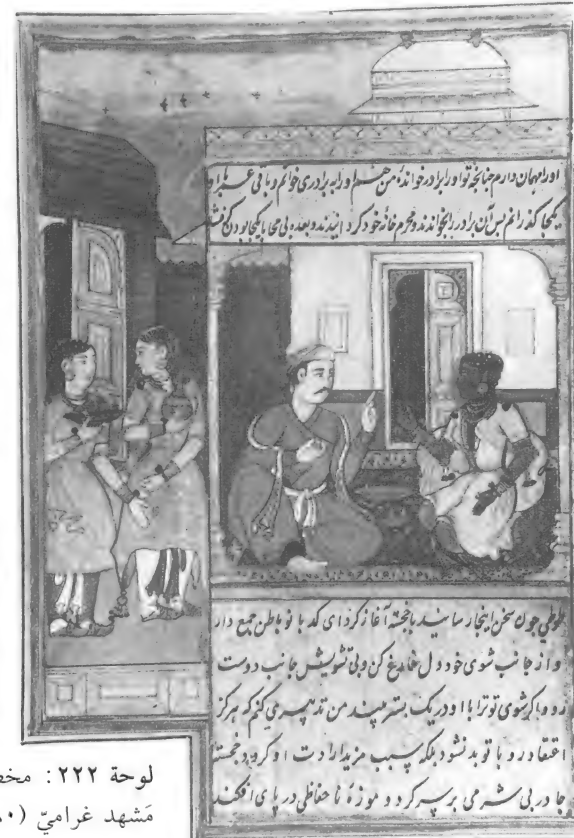 اورا مهمان دارم چنانچه تو اورا برادر خوانده من هم اورا به برادری خوانم و باقی عمر با او
یکجا گذرانم پس آن برادر را بخواندند و محرم خانه خود گردانیدند و بعده بی محابا یکجا بودن
طوطی چون سخن اینجا رسانید با خجسته آغاز کرد ای کدبانو باطن جمع دار
و از جانب شوی خود دل فارغ کن و بی تشویش جانب دوست
رو و اگر شوی تو ترا با او در یک بستر بیند من تدبیری کنم که هرگز
اعتقاد او با تو بد نشود بلکه سبب مزید ارادت او گردد خجسته
چادر بی شرمی بر سر کرد و موزهٔ نا حفاظی در پای افکند
لوحة ٢٢٢:
مَشهد غراميّ